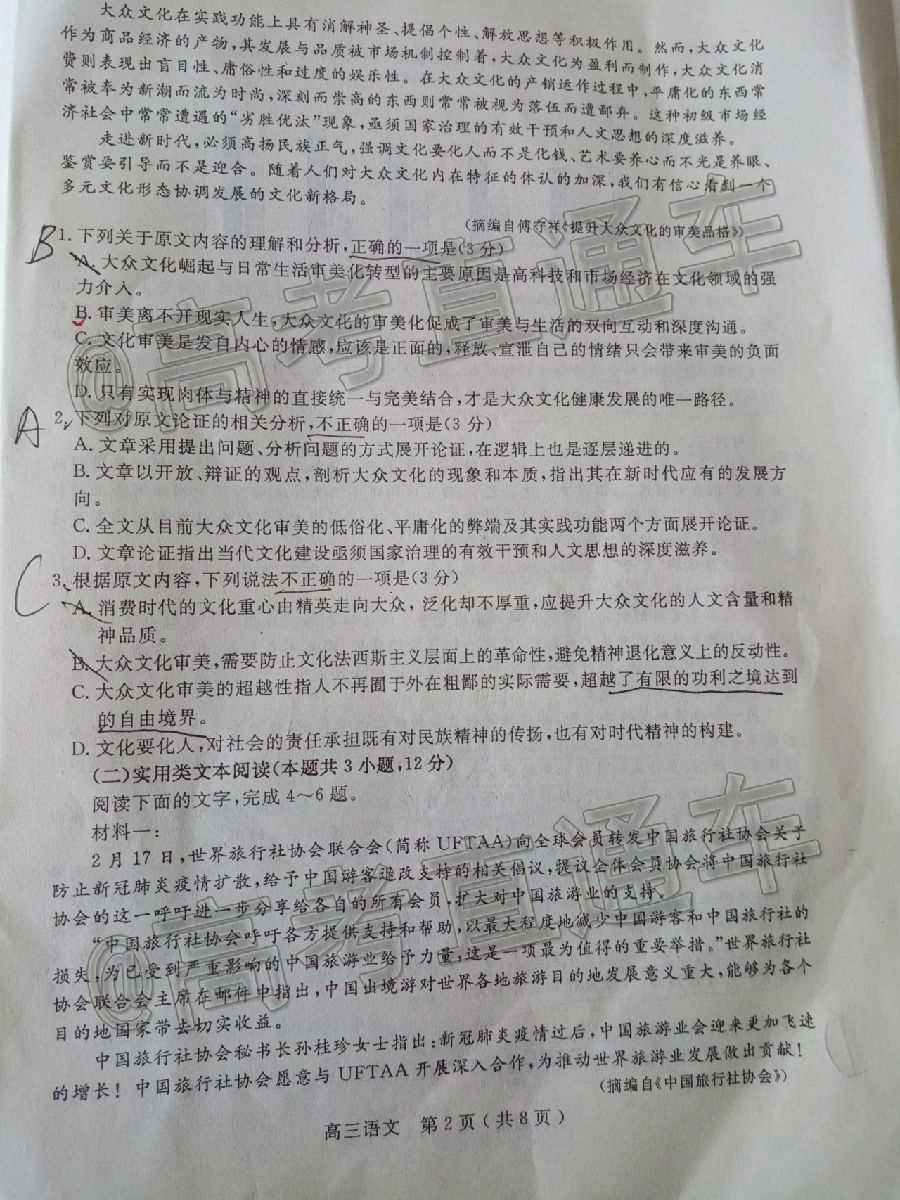 大众文化在实践功能上具有消解神圣、提倡个性、解放思想等积极作用。然而,大众文化
作为商品经济的产物,其发展与品质被市场机制控制着,大众文化为盈利而制作,大众文化消
费则表现出盲目性、庸俗性和过度的娱乐性。在大众文化的产销运作过程中,平庸化的东西常
常被奉为新潮而流为时尚,深刻而崇高的东西则常常被视为落伍而遭鄙弃。这种初级市场经
济社会中常常遭遇的“劣胜优汰”现象,亟须国家治理的有效干预和人文思想的深度滋养。
走进新时代,必须高扬民族正气,强调文化要化人而不是化钱、艺术要养心而不光是养眼、
鉴赏要引导而不是迎合。随着人们对大众文化内在特征的体认的加深,我们有信心看到一个
多元文化形态协调发展的文化新格局。
(摘编自傅守祥《提升大众文化的审美品格》)
B
1. 下列关于原文内容的理解和分析,正确的一项是(3分)
A. 大众文化崛起与日常生活审美化转型的主要原因是高科技和市场经济在文化领域的强
力介入。
B. 审美离不开现实人生,大众文化的审美化促成了审美与生活的双向互动和深度沟通。
C. 文化审美是发自内心的情感,应该是正面的,释放、宣泄自己的情绪只会带来审美的负面
效应。
D. 只有实现肉体与精神的直接统一与完美结合,才是大众文化健康发展的唯一路径。
A
2. 下列对原文论证的相关分析,不正确的一项是(3分)
A. 文章采用提出问题、分析问题的方式展开论证,在逻辑上也是逐层递进的。
B. 文章以开放、辩证的观点,剖析大众文化的现象和本质,指出其在新时代应有的发展方
向。
C. 全文从目前大众文化审美的低俗化、平庸化的弊端及其实践功能两个方面展开论证。
D. 文章论证指出当代文化建设亟须国家治理的有效干预和人文思想的深度滋养。
C
3. 根据原文内容,下列说法不正确的一项是(3分)
A. 消费时代的文化重心由精英走向大众,泛化却不厚重,应提升大众文化的人文含量和精
神品质。
B. 大众文化审美,需要防止文化法西斯主义层面上的革命性,避免精神退化意义上的反动性。
C. 大众文化审美的超越性指人不再囿于外在粗鄙的实际需要,超越了有限的功利之境达到
的自由境界。
D. 文化要化人,对社会的责任承担既有对民族精神的传扬,也有对时代精神的构建。
(二)实用类文本阅读(本题共3小题,12分)
阅读下面的文字,完成4~6题。
材料一:
2月17日,世界旅行社协会联合会(简称UFTAA)向全球会员转发中国旅行社协会关于
防止新冠肺炎疫情扩散,给予中国游客退改支持的相关倡议,提议全体会员协会将中国旅行社
协会的这一呼吁进一步分享给各自的所有会员,扩大对中国旅游业的支持。
“中国旅行社协会呼吁各方提供支持和帮助,以最大程度地减少中国游客和中国旅行社的
损失,为已受到严重影响的中国旅游业给予力量,这是一项最为值得的重要举措。”世界旅行社
协会联合会主席在邮件中指出,中国出境游对世界各地旅游目的地发展意义重大,能够为各个
目的地国家带去切实收益。
中国旅行社协会秘书长孙桂珍女士指出:新冠肺炎疫情过后,中国旅游业会迎来更加飞速
的增长!中国旅行社协会愿意与UFTAA开展深入合作,为推动世界旅游业发展做出贡献!
(摘编自《中国旅行社协会》)
高三语文 第2页(共8页)
@高考直通车
@高考直通车